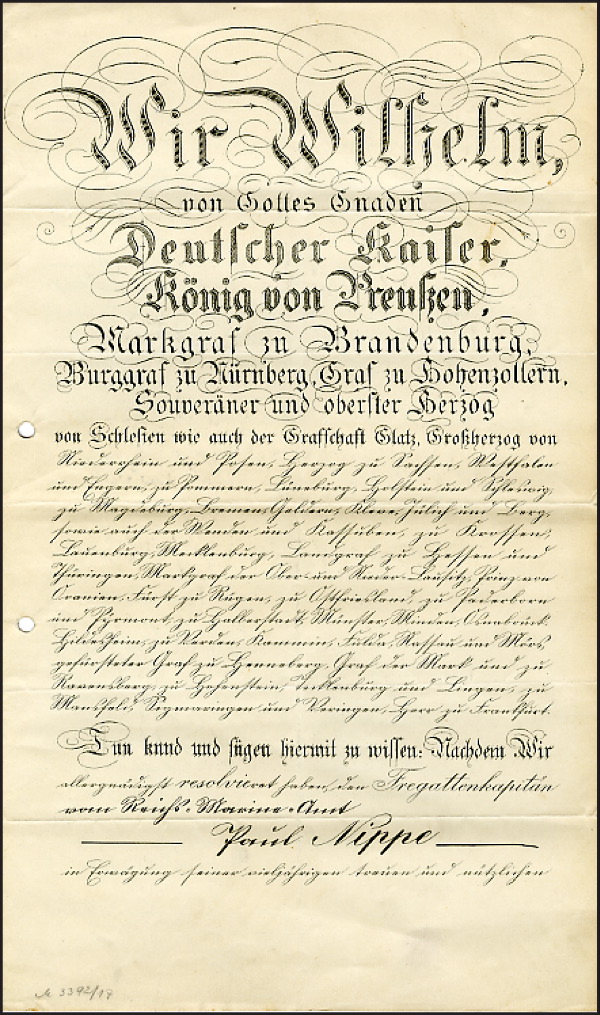 Wir Wilhelm,
von Gottes Gnaden
Deutscher Kaiser,
König von Preußen,
Markgraf zu Brandenburg,
Burggraf zu Nürnberg, Graf zu Hohenzollern,
Souveräner und oberster Herzog
von Schlesien wie auch der Grafschaft Glatz, Großherzog von
Niederrhein und Posen, Herzog zu Sachsen, Westfalen
und Engern, zu Pommern, Lüneburg, Holstein und Schleswig,
zu Magdeburg, Bremen, Geldern, Kleve, Jülich und Berg,
sowie auch der Wenden und Kassuben, zu Krossen,
Lauenburg, Mecklenburg, Landgraf zu Hessen und
Thüringen, Markgraf der Ober- und Nieder-Lausitz, Prinz von
Oranien, Fürst zu Rügen, zu Ostfriesland, zu Paderborn
und Pyrmont, zu Halberstadt, Münster, Minden, Osnabrück,
Hildesheim, zu Verden, Kammin, Fulda, Nassau und Mörs,
gefürsteter Graf zu Henneberg, Graf der Mark und zu
Ravensberg, zu Hohenstein, Tecklenburg und Lingen, zu
Mansfeld, Sigmaringen und Veringen, Herr zu Frankfurt.
Tun kund und fügen hiermit zu wissen: Nachdem Wir
allergnädigst resolvieret haben, den Fregattenkapitän
vom Reichs-Marine-Amt
Paul Nippe
in Erwägung seiner vieljährigen treuen und nützlichen
№ 3392/17